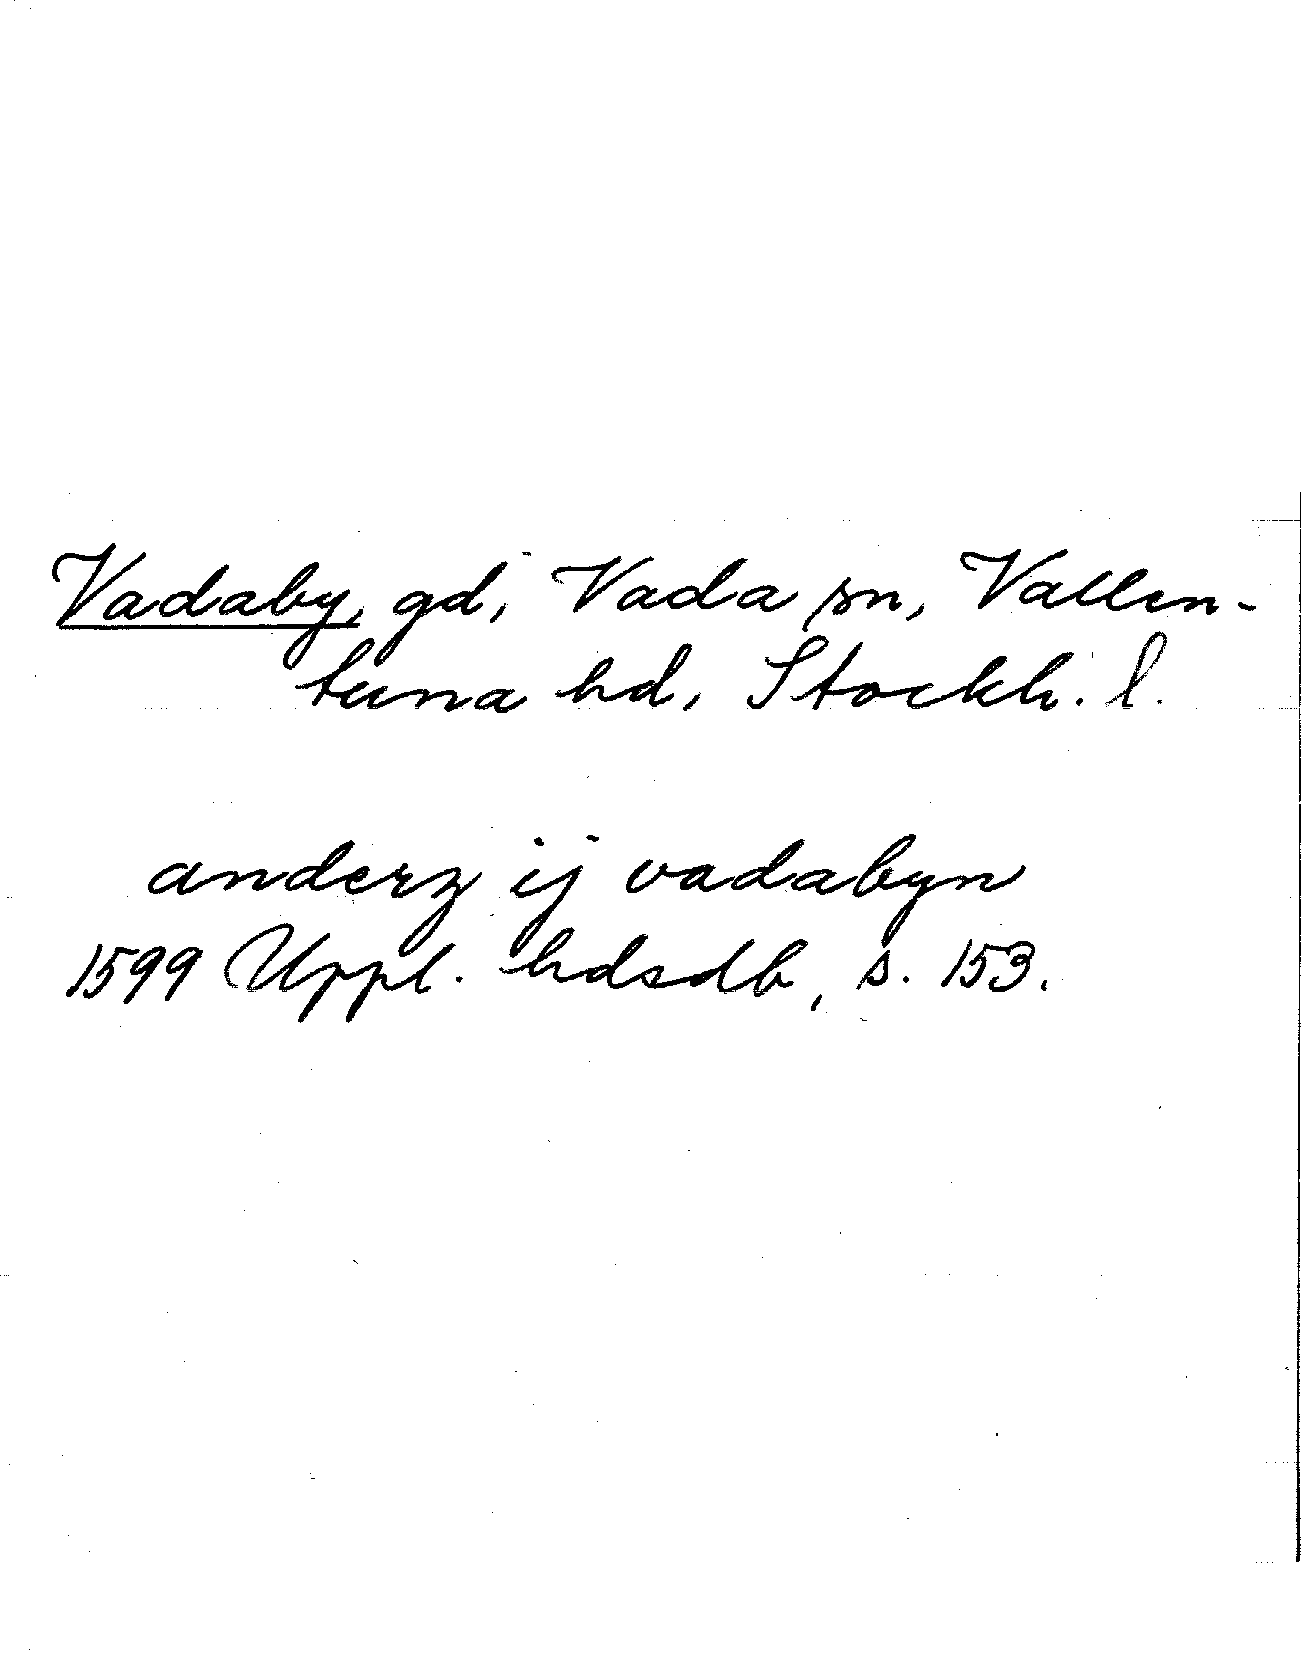 Vadaby, gd, Vada sn, Vallen-
tuna hd, Stockh. l.
anderz ij vadabyn
1599 Uppl. hdsdb, s. 153.